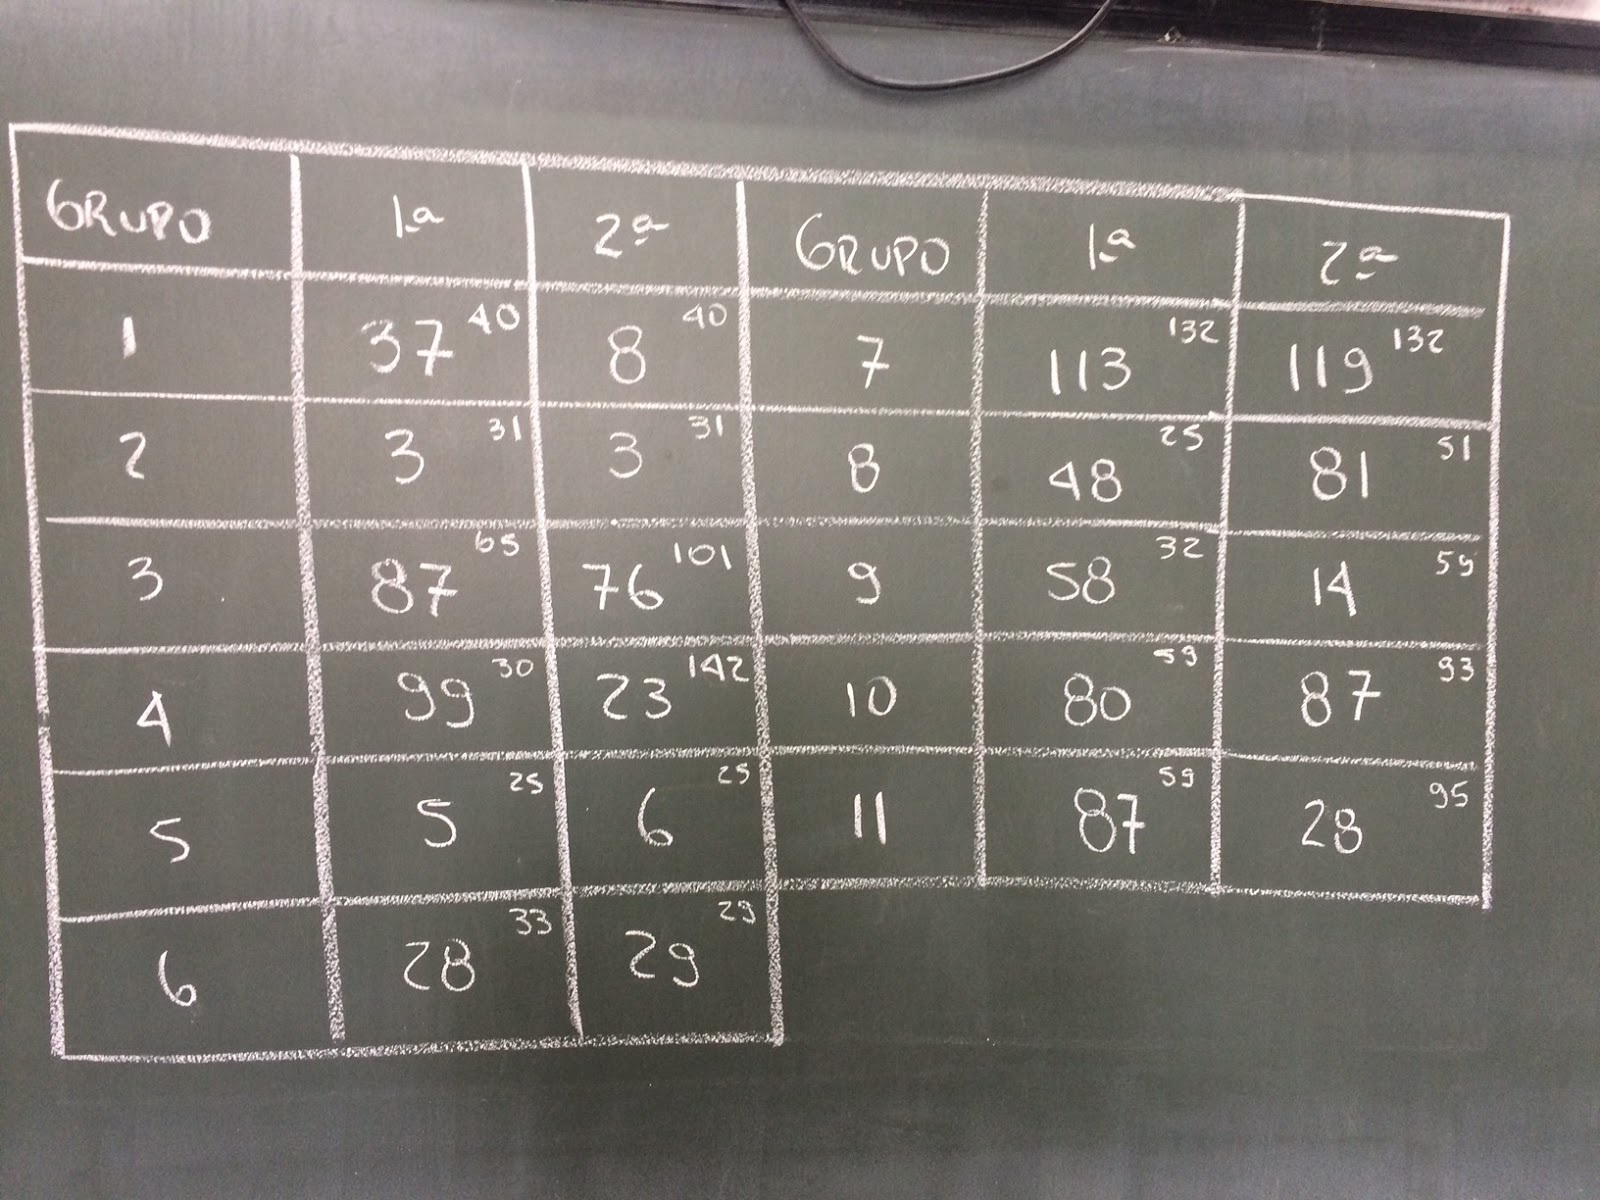 GRUPO 1ª 2ª GRUPO 1ª 2ª
1 37 40 8 40 7 113 132 119 132
2 3 31 3 31 8 48 25 81 51
3 87 65 76 101 9 58 32 14 59
4 99 30 23 142 10 80 59 87 93
5 5 25 6 25 11 87 59 28 95
6 28 33 29 29